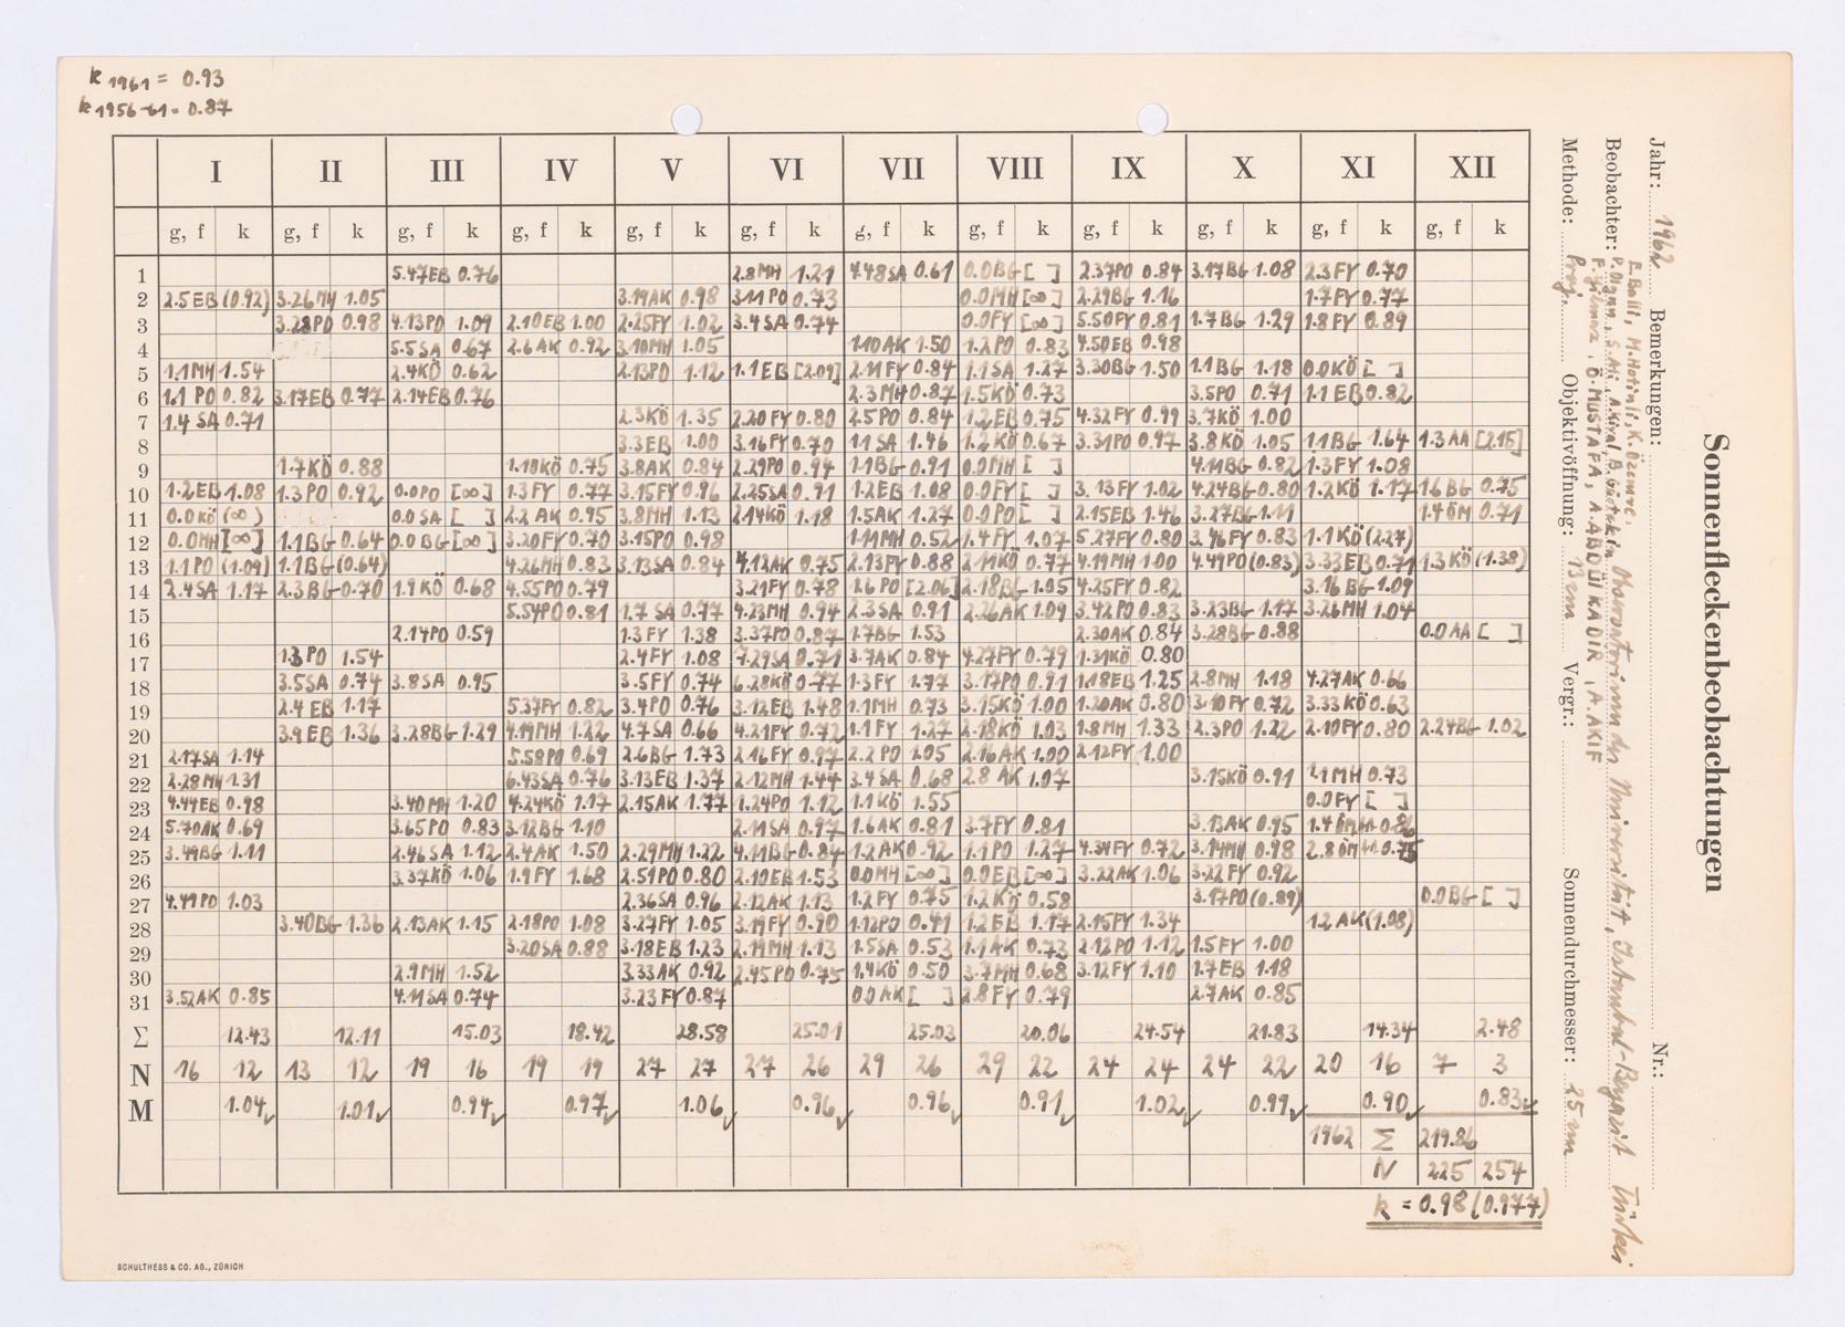 k 1961 = 0.93
k 1956-61 = 0.87
I II III IV V VI VII VIII IX X XI XII
g, f k g, f k g, f k g, f k g, f k g, f k g, f k g, f k g, f k g, f k g, f k g, f k
1 5.47EB 0.76 2.8MH 1.21 4.48SA 0.61 0.0BG [ ] 2.37PO 0.84 3.17BG 1.08 2.3FY 0.70
2 2.5EB (0.92) 3.26MH 1.05 3.19AK 0.98 3.11PO 0.73 0.0MH [∞] 2.29BG 1.16 1.7FY 0.77
3 3.28PO 0.98 4.13PO 1.09 2.10EB 1.00 2.25FY 1.02 3.4SA 0.74 0.0FY [∞] 5.50FY 0.81 1.7BG 1.29 1.8FY 0.89
4 5.5SA 0.67 2.6AK 0.92 3.10MH 1.05 1.10AK 1.50 1.2PO 0.83 4.50EB 0.98
5 1.1MH 1.54 2.4KÖ 0.62 2.13PO 1.12 1.1EB [2.09] 2.11FY 0.84 1.1SA 1.27 3.30BG 1.50 1.1BG 1.18 0.0KÖ [ ]
6 1.1PO 0.82 3.17EB 0.77 2.14EB 0.76 2.3MH 0.87 1.5KÖ 0.73 3.5PO 0.71 1.1EB 0.82
7 1.4SA 0.71 2.3KÖ 1.35 2.20FY 0.80 2.5PO 0.84 1.2EB 0.75 4.32FY 0.99 3.7KÖ 1.00
8 3.3EB 1.00 3.16FY 0.70 1.1SA 1.46 1.2KÖ 0.67 3.31PO 0.97 3.8KÖ 1.05 1.1BG 1.64 1.3AA [2.15]
9 1.7KÖ 0.88 1.10KÖ 0.75 3.8AK 0.84 2.29PO 0.94 1.1BG 0.91 0.0MH [ ] 4.11BG 0.82 1.3FY 1.08
10 1.2EB 1.08 1.3PO 0.92 0.0PO [∞] 1.3FY 0.77 3.15FY 0.96 2.25SA 0.91 1.2EB 1.08 0.0FY [ ] 3.13FY 1.02 4.24BG 0.80 1.2KÖ 1.17 1.6BG 0.75
11 0.0KÖ (∞) 0.0SA [ ] 2.2AK 0.95 3.8MH 1.13 2.14KÖ 1.18 1.5AK 1.27 0.0PO [ ] 2.15EB 1.46 3.27BG 1.11 1.4ÖM 0.71
12 0.0MH [∞] 1.1BG 0.64 0.0BG [∞] 3.20FY 0.70 3.15PO 0.98 1.11MH 0.52 1.4FY 1.07 5.27FY 0.80 3.46FY 0.83 1.1KÖ (2.27)
13 1.1PO (1.09) 1.1BG (0.64) 4.26MH 0.83 3.13SA 0.84 4.12AK 0.75 2.13FY 0.88 2.11KÖ 0.77 4.19MH 1.00 4.49PO (0.83) 3.33EB 0.71 1.3KÖ (1.38)
14 2.4SA 1.17 2.3BG 0.70 1.9KÖ 0.68 4.55PO 0.79 3.21FY 0.78 1.6PO [2.06] 2.18BG 1.05 4.25FY 0.82 3.16BG 1.09
15 5.54PO 0.81 1.7SA 0.77 4.23MH 0.94 2.3SA 0.91 2.26AK 1.09 3.42PO 0.83 3.23BG 1.17 3.26MH 1.04
16 2.14PO 0.59 1.3FY 1.38 3.37PO 0.87 1.7BG 1.53 2.30AK 0.84 3.28BG 0.88 0.0AA [ ]
17 1.3PO 1.54 2.4FY 1.08 7.29SA 0.71 3.7AK 0.84 4.27FY 0.79 1.31KÖ 0.80
18 3.5SA 0.74 3.8SA 0.95 3.5FY 0.74 6.28KÖ 0.77 1.3FY 1.77 3.17PO 0.91 1.18EB 1.25 2.8MH 1.18 4.27AK 0.66
19 2.4EB 1.17 5.37FY 0.82 3.4PO 0.76 3.12EB 1.48 1.1MH 0.73 3.15KÖ 1.00 1.20AK 0.80 3.10FY 0.72 3.33KÖ 0.63
20 3.9EB 1.36 3.28BG 1.29 4.19MH 1.22 4.7SA 0.66 4.21FY 0.72 1.1FY 1.27 2.18KÖ 1.03 1.8MH 1.33 2.3PO 1.22 2.10FY 0.80 2.24BG 1.02
21 2.17SA 1.14 5.58PO 0.69 2.6BG 1.73 2.16FY 0.97 2.2PO 1.05 2.16AK 1.00 2.12FY 1.00
22 2.28MH 1.31 6.43SA 0.76 3.13EB 1.37 2.12MH 1.44 3.4SA 0.68 2.8AK 1.07 3.15KÖ 0.91 2.1MH 0.73
23 4.44EB 0.98 3.40MH 1.20 4.24KÖ 1.17 2.15AK 1.77 1.24PO 1.12 1.1KÖ 1.55 0.0FY [ ]
24 5.70AK 0.69 3.65PO 0.83 3.12BG 1.10 2.11SA 0.97 1.6AK 0.81 3.7FY 0.81 3.13AK 0.95 1.4ÖM
25 3.49BG 1.11 2.46SA 1.12 2.4AK 1.50 2.29MH 1.22 4.11BG 0.84 1.2AK 0.92 1.1PO 1.27 4.34FY 0.72 3.14MH 0.98 2.8ÖM 0.75
26 3.37KÖ 1.06 1.9FY 1.68 2.51PO 0.80 2.10EB 1.53 0.0MH [∞] 0.0EB [∞] 3.22AK 1.06 3.22FY 0.92
27 4.49PO 1.03 2.36SA 0.96 2.12AK 1.13 1.2FY 0.75 1.2KÖ 0.58 3.17PO (0.89) 0.0BG [ ]
28 3.40BG 1.36 2.13AK 1.15 2.18PO 1.08 3.27FY 1.05 3.19FY 0.90 1.12PO 0.41 1.2EB 1.17 2.15FY 1.34 1.2AK (1.08)
29 3.20SA 0.88 3.18EB 1.23 2.19MH 1.13 1.5SA 0.53 1.1AK 0.73 2.12PO 1.12 1.5FY 1.00
30 2.9MH 1.52 3.33AK 0.92 2.45PO 0.75 1.4KÖ 0.50 3.7MH 0.68 3.12FY 1.10 1.7EB 1.18
31 3.52AK 0.85 4.11SA 0.74 3.23FY 0.87 0.0AK [ ] 2.8FY 0.79 2.7AK 0.85
Σ 12.43 12.11 15.03 18.42 28.58 25.01 25.03 20.06 24.54 21.83 14.34 2.48
N 16 12 13 12 19 16 19 19 27 27 27 26 29 26 29 22 24 24 24 22 20 16 7 3
M 1.04 1.01 0.94 0.97 1.06 0.96 0.96 0.91 1.02 0.99 0.90 0.83
1962 Σ 219.86
N 225 254
k = 0.98 (0.977)
SCHULTHESS & CO. AG., ZÜRICH
Sonnenfleckenbeobachtungen
Jahr: 1962 Bemerkungen: Nr.:
E. Ball, M. Hotinli, K. Özemre,
Beobachter: Observatorium der Universität, Istanbul-Beyazit Türkei
F. Yilmaz, Ö. MUSTAFA, A. ABDÜLKADIR, A. AKIF
Methode: Proj. Objektivöffnung: 13 cm Vergr.: Sonnendurchmesser: 25 cm